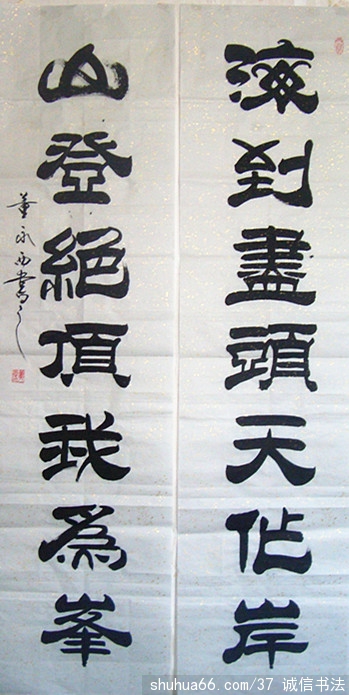 海到盡頭天作岸
山登絶頂我為峯
董永西書之
shuhua66.com/37 诚信书法